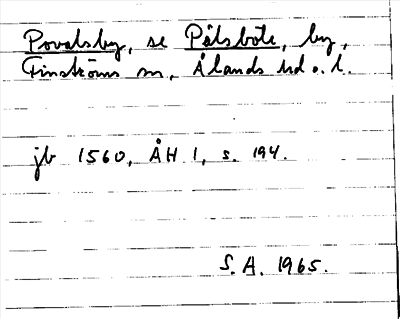 Povalsby, se Pålsböte, by,
Finströms sn, Ålands hd o. l.
jb 1560, ÅH 1, s. 194.
S. A. 1965.